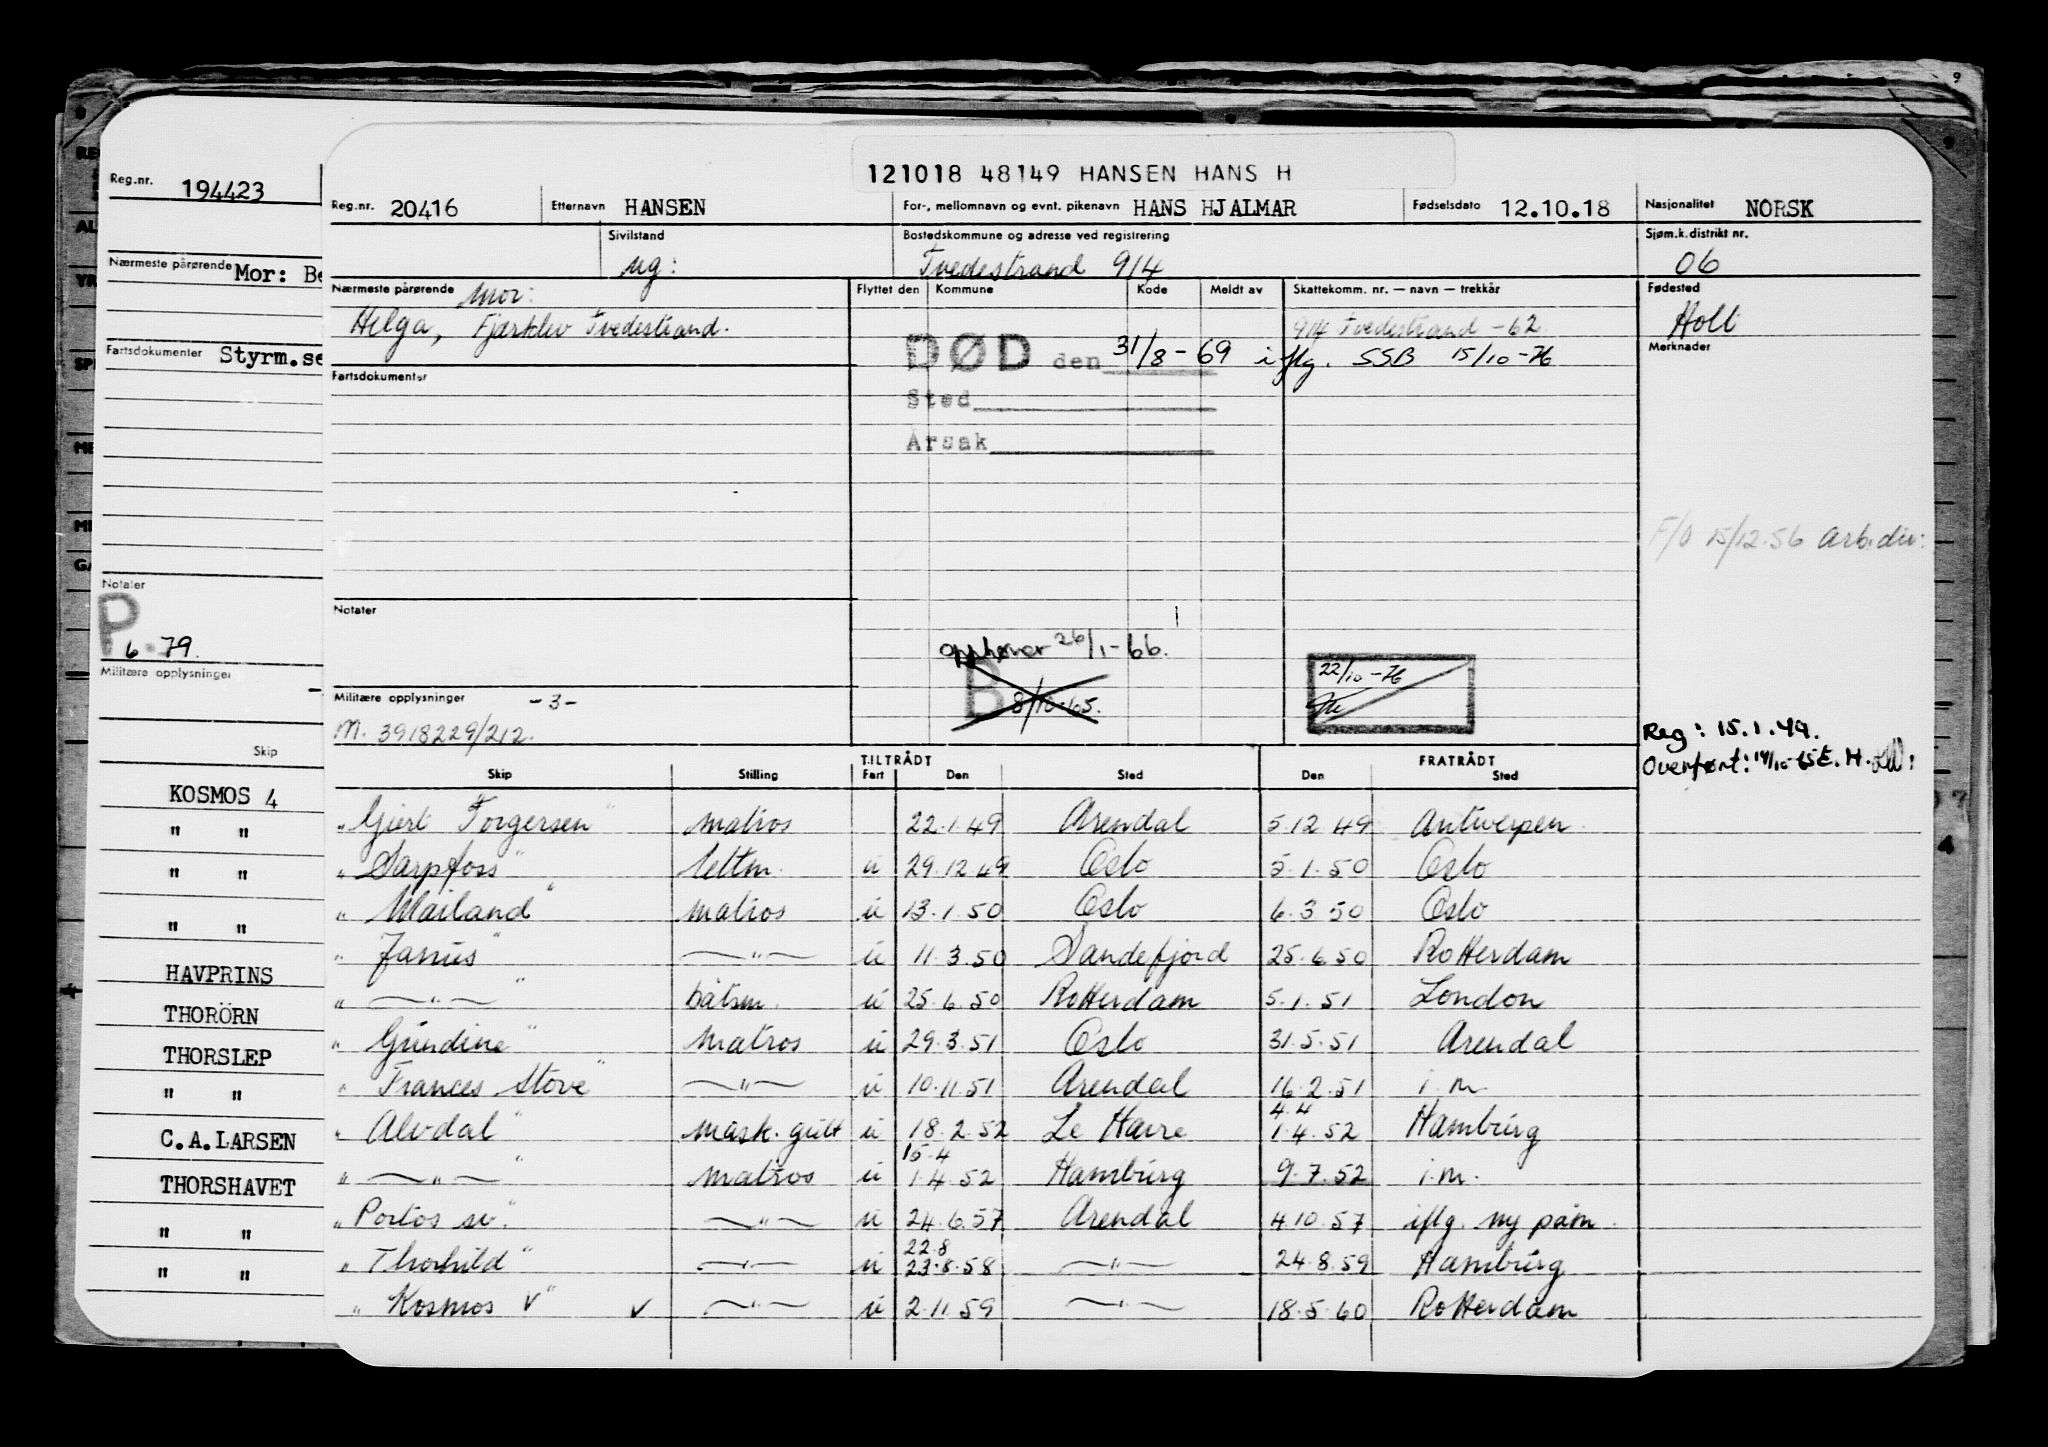 121018 48149 HANSEN HANS H
Reg.nr. 20416 Etternavn HANSEN For-, mellomnavn og evnt. pikenavn HANS HJALMAR Fødselsdato 12.10.18 Nasjonalitet NORSK
Sivilstand Bostedskommune og adresse ved registrering Sjøm.k.distrikt nr.
ug: Tvedestrand 914 06
Nærmeste pårørende Mor: Flyttet den Kommune Kode Meldt av Skattekomm. nr. — navn — trekkår Fødested
Helga, Fjærkleiv Tvedestrand. 914 Tvedestrand -62 Holt
DØD den 31/8-69 iflg. SSB 15/10-76 Merknader
Fartsdokumenter
Sted
Årsak
F/O 15/12.56 Arb.div:
Notater
opphører 26/1-66.
B 8/10-65.
22/10-76
Militære opplysninger -3-
M. 3918229/212.
Reg: 15.1.49.
Overført: 14/10-65 E.H.
TILTRÅDT FRATRÅDT
Skip Stilling Fart Den Sted Den Sted
"Gjert Torgersen" matros 22.1.49 Arendal 5.12.49 Antwerpen
"Sarpfoss" lettm. u 29.12.49 Oslo 5.1.50 Oslo
"Mailand" matros u 13.1.50 Oslo 6.3.50 Oslo
"Janus" —"— u 11.3.50 Sandefjord 25.6.50 Rotterdam
" —"— " båtsm. u 25.6.50 Rotterdam 5.1.51 London
"Gundine" matros u 29.3.51 Oslo 31.5.51 Arendal
"Frances Stove" —"— u 10.11.51 Arendal 16.2.51 i.m.
"Alvdal" mask.gutt u 18.2.52 Le Havre 4.4 1.4.52 Hamburg
" —"— " matros u 15.4 1.4.52 Hamburg 9.7.52 i.m.
"Portos sv." —"— u 24.6.57 Arendal 4.10.57 iflg. ny påm.
"Thorhild" —"— u 22.8 23.8.58 —"— 24.8.59 Hamburg
"Kosmos V" v —"— u 2.11.59 —"— 18.5.60 Rotterdam
Reg.nr. 194423
Nærmeste pårørende Mor: Be
Fartsdokumenter Styrm.se
Notater
P
6-79.
Militære opplysninger
Skip
KOSMOS 4
" "
" "
" "
HAVPRINS
THORÖRN
THORSLEP
" "
C.A.LARSEN
THORSHAVET
" "
" "